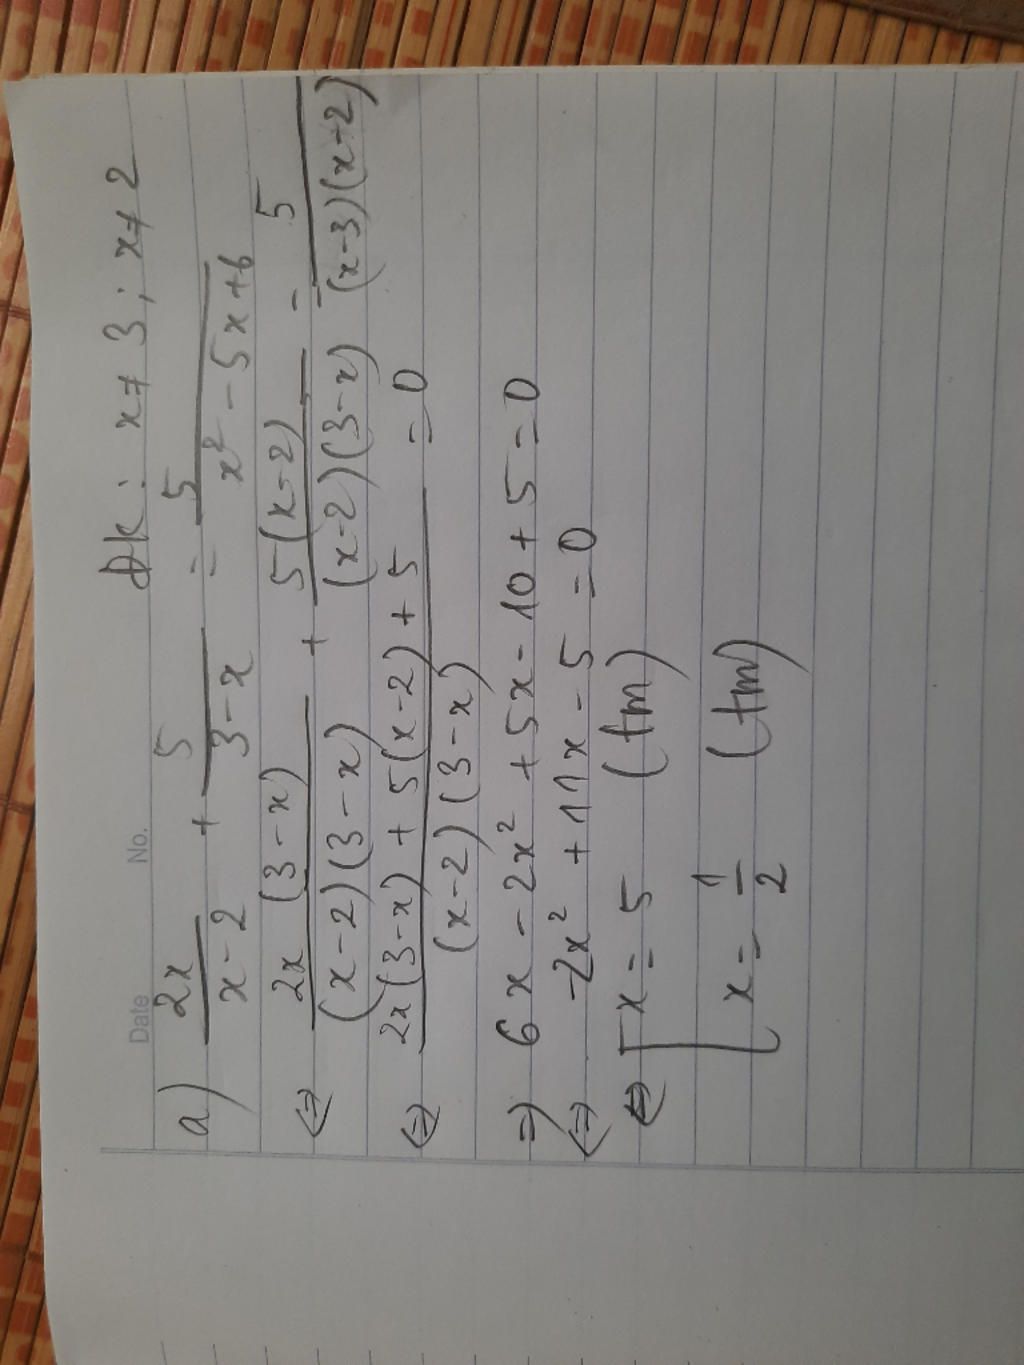 Date No. Đk: x ≠ 3; x ≠ 2
a) 2x/(x-2) + 5/(3-x) = 5/(x² - 5x + 6)
⇔ 2x(3-x)/((x-2)(3-x)) + 5(x-2)/((x-2)(3-x)) - 5/((x-3)(x-2))
⇔ (2x(3-x) + 5(x-2) + 5)/((x-2)(3-x)) = 0
⇒ 6x - 2x² + 5x - 10 + 5 = 0
⇔ -2x² + 11x - 5 = 0
⇔ [x = 5 (tm)
[x = 1/2 (tm)